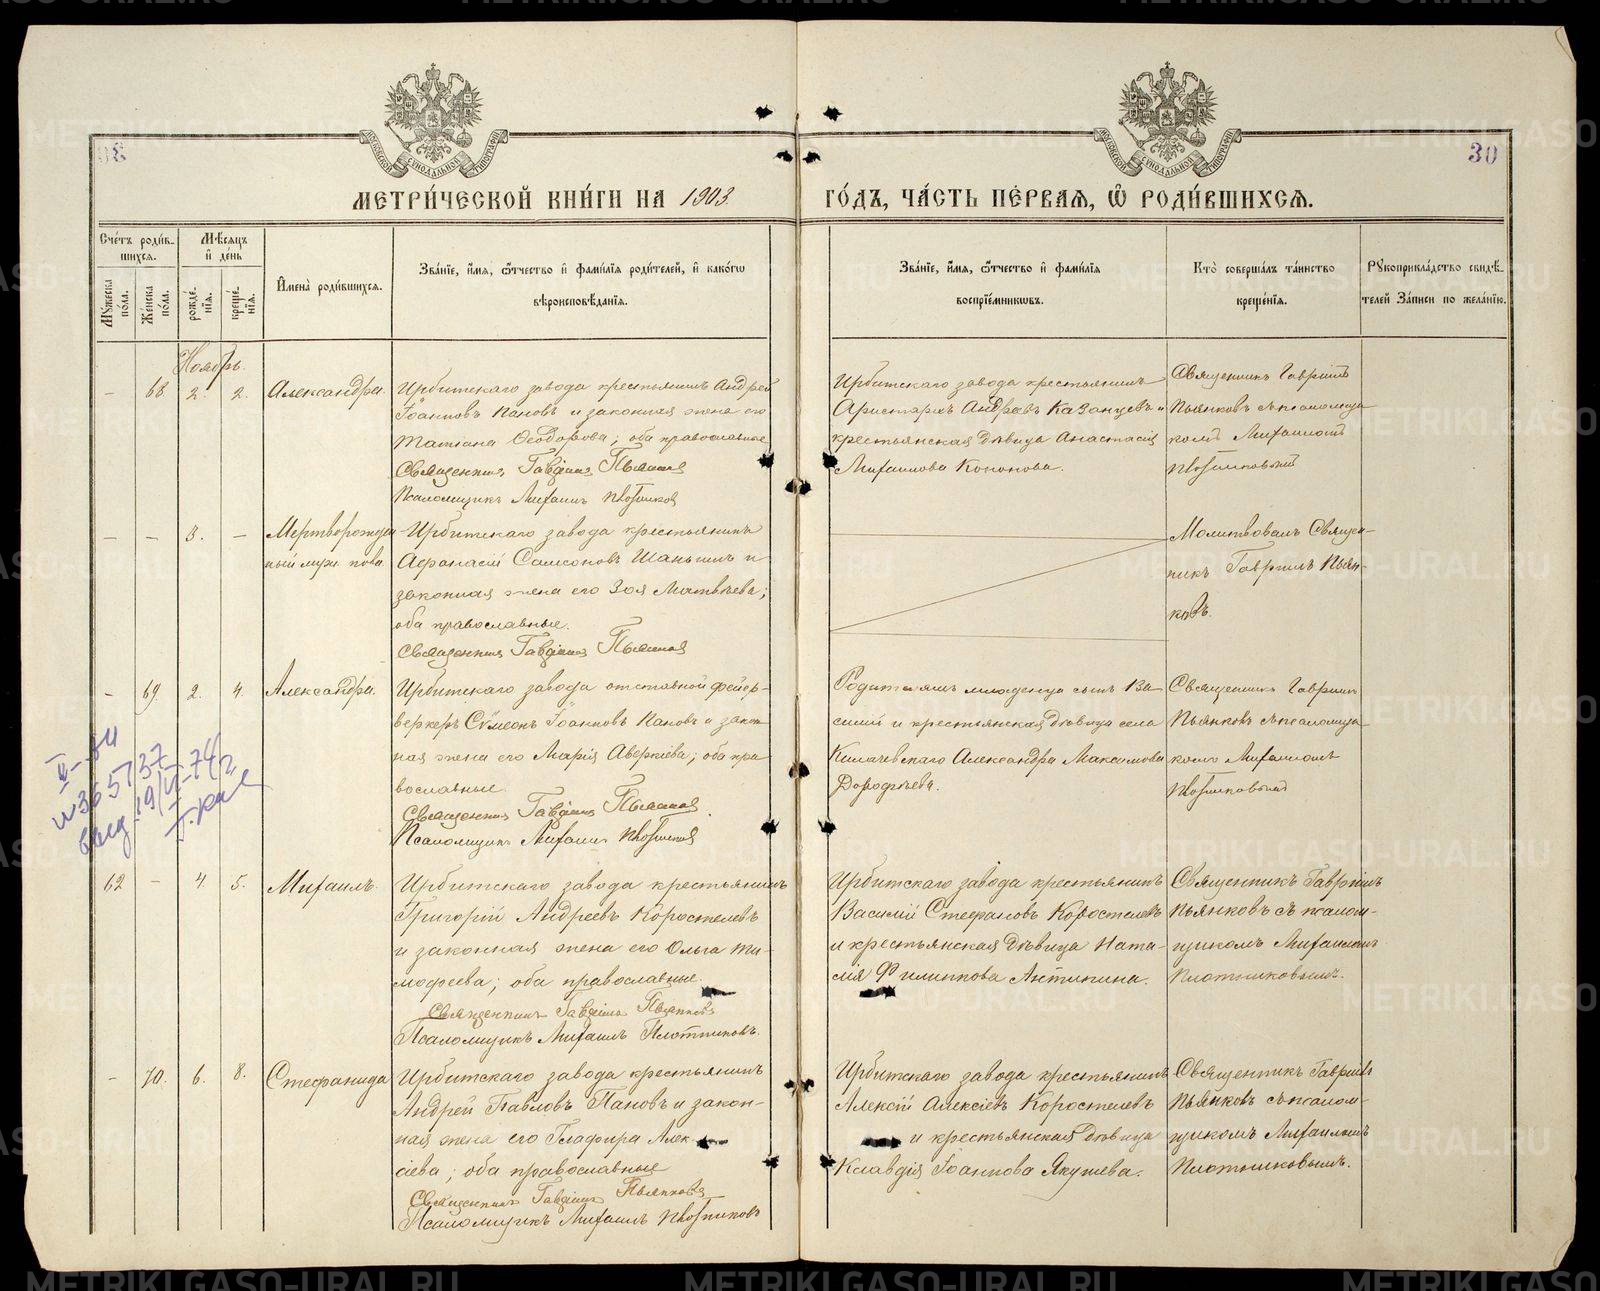 30
МЕТРИ́ЧЕСКОЙ КНИ́ГИ НА 1903 ГО́ДЪ, ЧА́СТЬ ПЕ́РВАЯ, Ѡ РОДИ́ВШИХСЯ.
Сче́тъ роди́в-
шихся.
Мѣсяцъ
и де́нь
Мꙋжеска
по́ла.
Же́нска
по́ла.
рожде́-
нїя.
креще́-
нїя.
Имена̀ роди́вшихся.
Зва́нїе, и́мя, ѻ́тчество и фами́лїя роди́телей, и како́гѡ
вѣроисповѣ́данїя.
Зва́нїе, и́мя, ѻ́тчество и фами́лїя
воспрїе́мниковъ.
Кто̀ соверша́лъ та́инство
креще́нїя.
Рꙋкоприкла́дство свидѣ́-
телей за́писи по жела́нїю.
Ноябрь.
– 68. 2. 2. Александра.
Ирбитскаго завода крестьянинъ Андрей
Іоанновъ Пановъ и законная жена его
Татіана Ѳеодорова; оба православные
Священникъ Гавріилъ Пьянков
Псаломщикъ Михаилъ Плотников
Ирбитскаго завода крестьянинъ
Аристархъ Казанцевъ и
крестьянская дѣвица Анастасія
Михаилова Кононова.
Священникъ Гавріилъ
Пьянковъ съ псаломщи
комъ Михаиломъ
Плотниковымъ
– – 3. – Мертворожден-
ный муж. пола.
Ирбитскаго завода крестьянинъ
Аѳанасій Самсоновъ Шаньгинъ и
законная жена его Зоя Матвѣева;
оба православные.
Священникъ Гавріилъ Пьянков
Молитвовалъ Священ-
никъ Гавріилъ Пьян-
ковъ.
– 69. 2. 4. Александра.
Ирбитскаго завода отставной фейер-
веркеръ Симеонъ Іоанновъ Пановъ и закон
ная жена его Марія Аверкіева; оба пра
вославные
Священникъ Гавріилъ Пьянков
Псаломщикъ Михаилъ Плотников
Родителямъ младенца сынъ Ва
силій и крестьянская дѣвица села
Килачевскаго Александра Максимова
Дорофѣева.
Священникъ Гавріилъ
Пьянковъ съ псаломщи
комъ Михаиломъ
Плотниковымъ
62 – 4. 5. Михаилъ.
Ирбитскаго завода крестьянинъ
Григорій Андреевъ Коростелевъ
и законная жена его Ольга Ти-
моѳеева; оба православные.
Священникъ Гавріилъ Пьянковъ
Псаломщикъ Михаилъ Плотниковъ.
Ирбитскаго завода крестьянинъ
Василій Стефановъ Коростелевъ
и крестьянская дѣвица Ната-
лія Филиппова Антипина.
Священникъ Гавріилъ
Пьянковъ съ псалом-
щикомъ Михаиломъ
Плотниковымъ.
– 70. 6. 8. Стефанида
Ирбитскаго завода крестьянинъ
Андрей Павловъ Пановъ и закон-
ная жена его Глафира Алек-
сіева; оба православные
Священникъ Гавріилъ Пьянковъ
Псаломщикъ Михаилъ Плотниковъ
Ирбитскаго завода крестьянинъ
Алексій Алексіевъ Коростелевъ
и крестьянская дѣвица
Клавдія Іоаннова Якушева.
Священникъ Гавріилъ
Пьянковъ съ псалом-
щикомъ Михаиломъ
Плотниковымъ.
METRIKI.GASO-URAL.RU